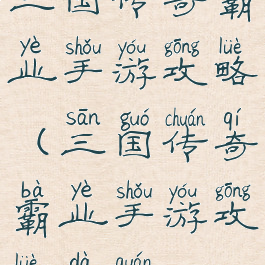 三国传奇霸
yè shǒu yóu gōng lüè
业手游攻略
sān guó chuán qí
（三国传奇
bà yè shǒu yóu gōng
霸业手游攻
lüè dà quán